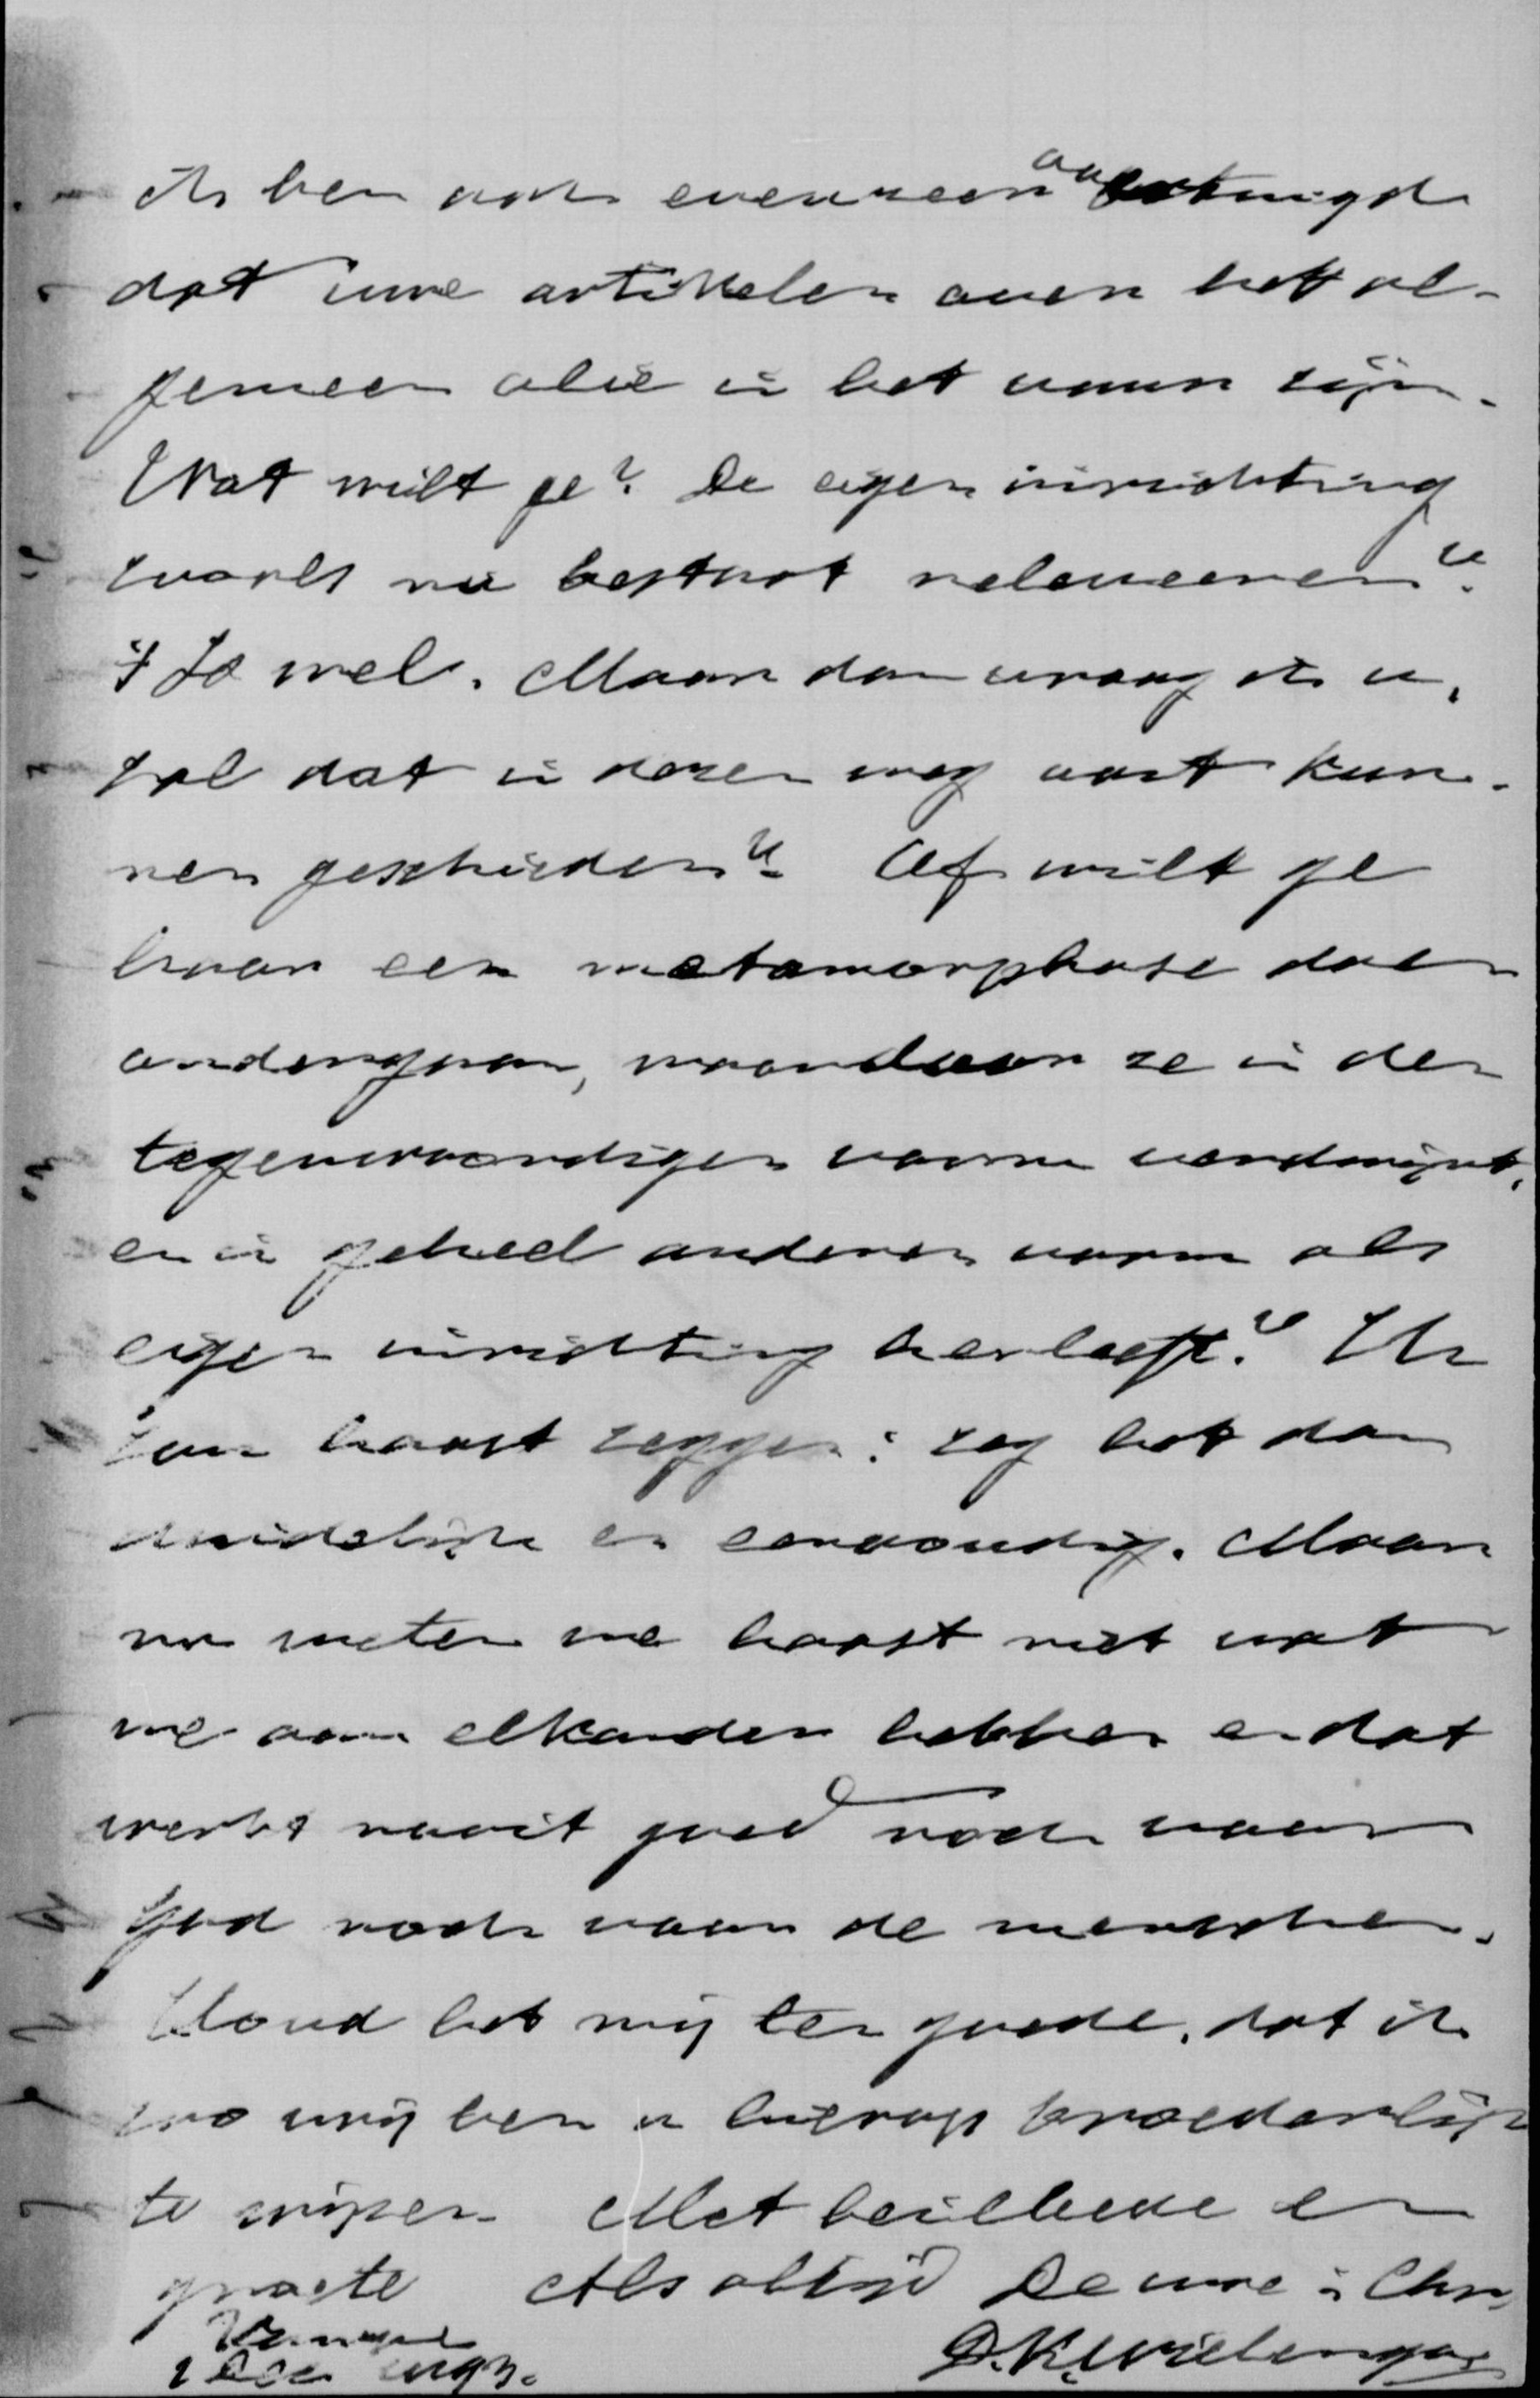 Ik ben ook evenzeer overtuigd
dat uwe artikelen over het al-
gemeen olie in het vuur zijn.
Wat wilt ge? De eigen inrichting
zooals nu bestaat releveeren?
Ja wel. Maar dan vraag ik u,
zal dat in dezen weg ooit kun-
nen geschieden? Of wilt ge
haar een metamorphose doen
ondergaan, waardoor ze in den
tegenwoordigen vorm verdwijnt,
en in geheel anderen vorm als
eigen inrichting herleeft? Ik
zou haast zeggen: zeg het dan
duidelijk en eenvoudig. Maar
nu weten we haast niet wat
we aan elkander hebben en dat
werkt nooit goed noch voor
God noch voor de menschen.
Houd het mij ten goede, dat ik
zoo vrij ben u hierop broederlijk
te wijzen. Met heilbede en
groete Als altijd De uwe in Chr,
D. K. Wielenga
1 Dec